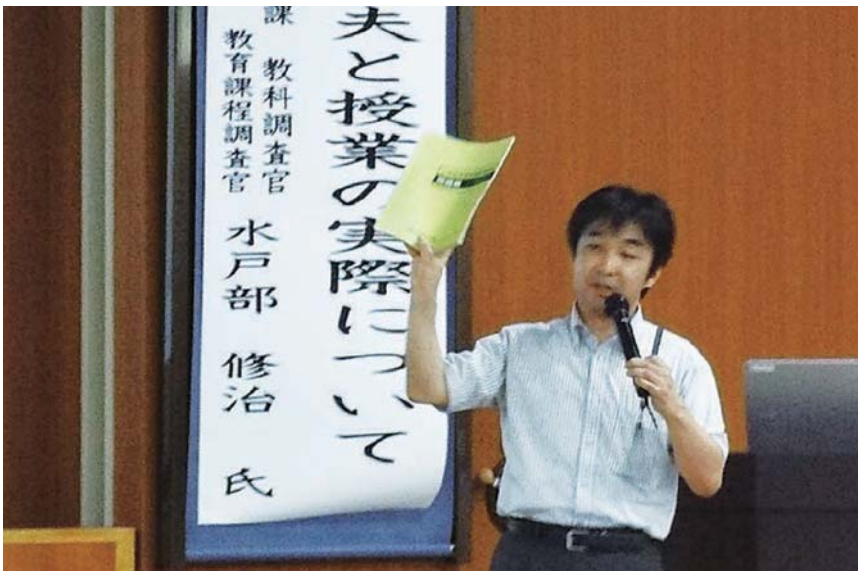 夫と授業の実際について
課 教科調査官
教育課程調査官 水戸部 修治 氏